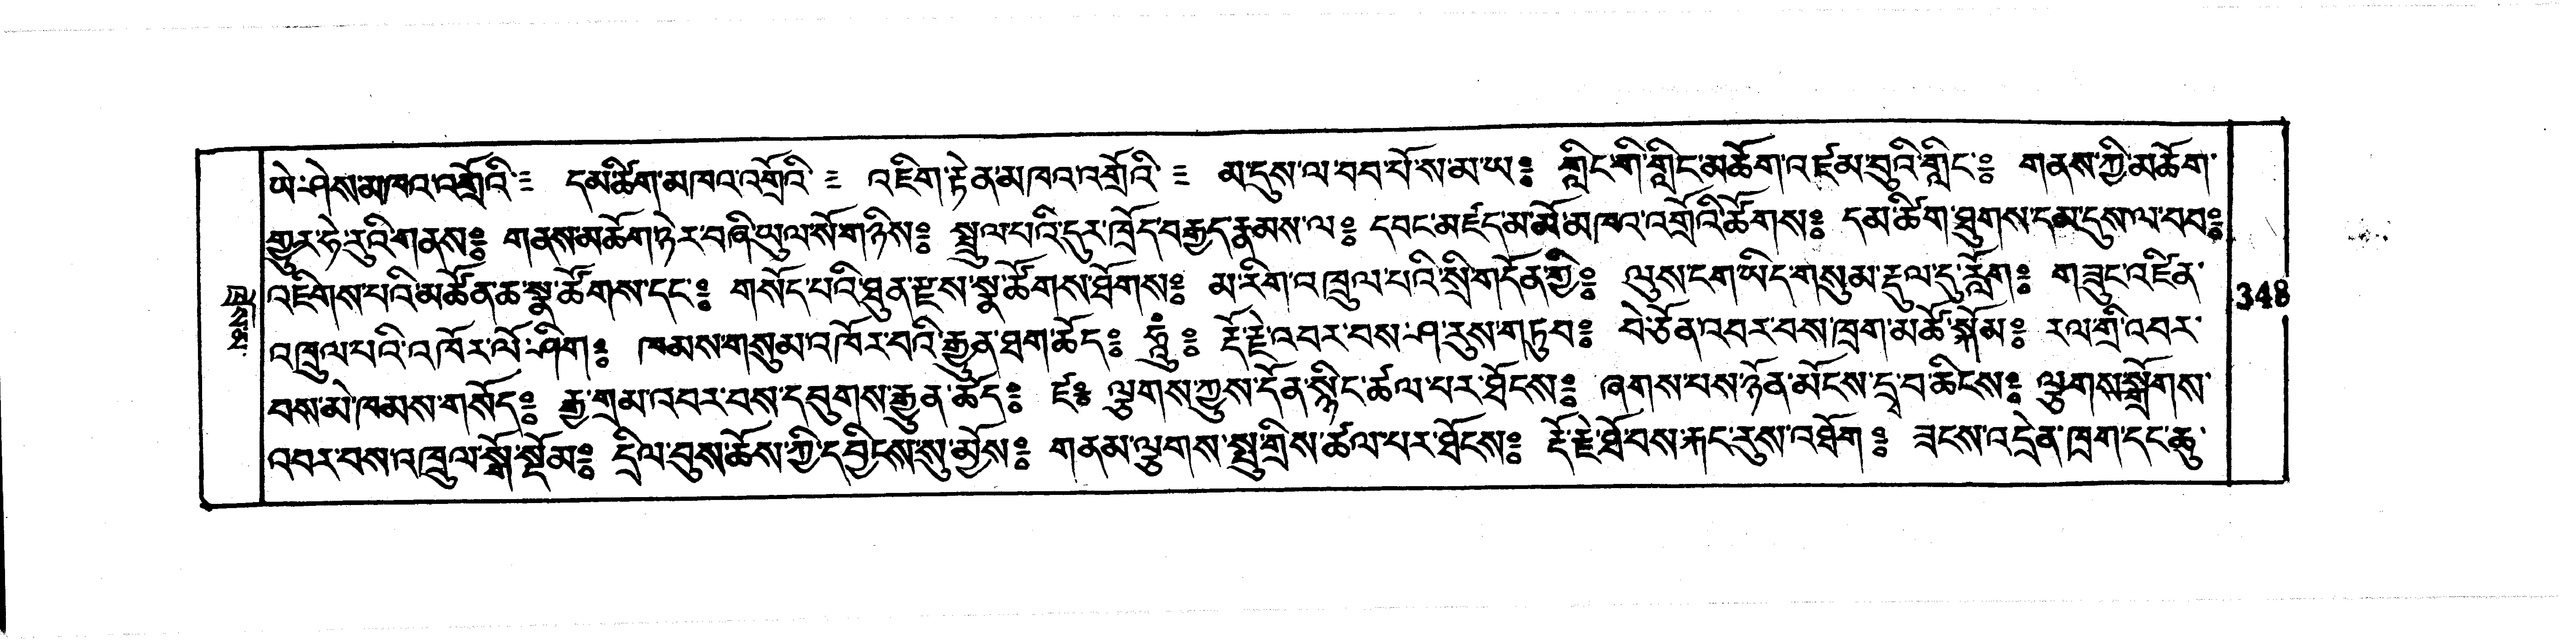 ཡེ་ཤེས་མཁའ་འགྲོའི་ ༔ དམ་ཚིག་མཁའ་འགྲོའི་ ༔ འཇིག་རྟེན་མཁའ་འགྲོའི་ ༔ མ་དུས་ལ་བབ་པོ་ས་མ་ཡ༔ གླིང་གི་གླིང་མཆོག་འཛམ་བུའི་གླིང་༔ གནས་ཀྱི་མཆོག་
གྱུར་ཧེ་རུའི་གནས༔ གནས་མཆོག་ཉེར་བཞི་ཡུལ་སོ་གཉིས༔ སྤྲུལ་པའི་དུར་ཁྲོད་བརྒྱད་རྣམས་ལ༔ དབང་མཛད་མ་མོ་མཁའ་འགྲོའི་ཚོགས༔ དམ་ཚིག་ཐུགས་དམ་དུས་ལ་བབ༔
འཇིགས་པའི་མཚོན་ཆ་སྣ་ཚོགས་དང་༔ གསོད་པའི་ཐུན་རྫས་སྣ་ཚོགས་ཐོགས༔ མ་རིག་འཁྲུལ་པའི་སྲི་གདོན་གྱི༔ ལུས་ངག་ཡིད་གསུམ་རྡུལ་དུ་རློག༔ གཟུང་འཛིན་
འཁྲུལ་པའི་འཁོར་ལོ་ཤིག༔ ཁམས་གསུམ་འཁོར་བའི་རྒྱུན་ཐག་ཆོད༔ ཧཱུྃ༔ རྡོ་རྗེ་འབར་བས་ཤ་རུས་གཏུབ༔ བེ་ཅོན་འབར་བས་ཁྲག་མཚོ་སྐོམ༔ རལ་གྲི་འབར་
བས་མེ་ཁམས་གསོད༔ རྒྱ་གྲམ་འབར་བས་དབུགས་རྒྱུན་ཆོད༔ ཛ༔ ལྕགས་ཀྱུས་དོན་སྙིང་ཚལ་པར་ཐོངས༔ ཞགས་པས་ཉོན་མོངས་དྲྭ་བ་ཆིངས༔ ལྕགས་སྒྲོགས་
འབར་བས་འཁྲུལ་སྒོ་སྡོམ༔ དྲིལ་བུས་ཆོས་ཀྱི་དབྱིངས་སུ་མྱོས༔ གནམ་ལྕགས་སྤུ་གྲིས་ཚལ་པར་ཐོངས༔ རྡོ་རྗེ་ཐོ་བས་རྐང་རུས་འཐོག༔ ཟངས་འདྲེན་ཁྲག་དང་ཆུ་
348